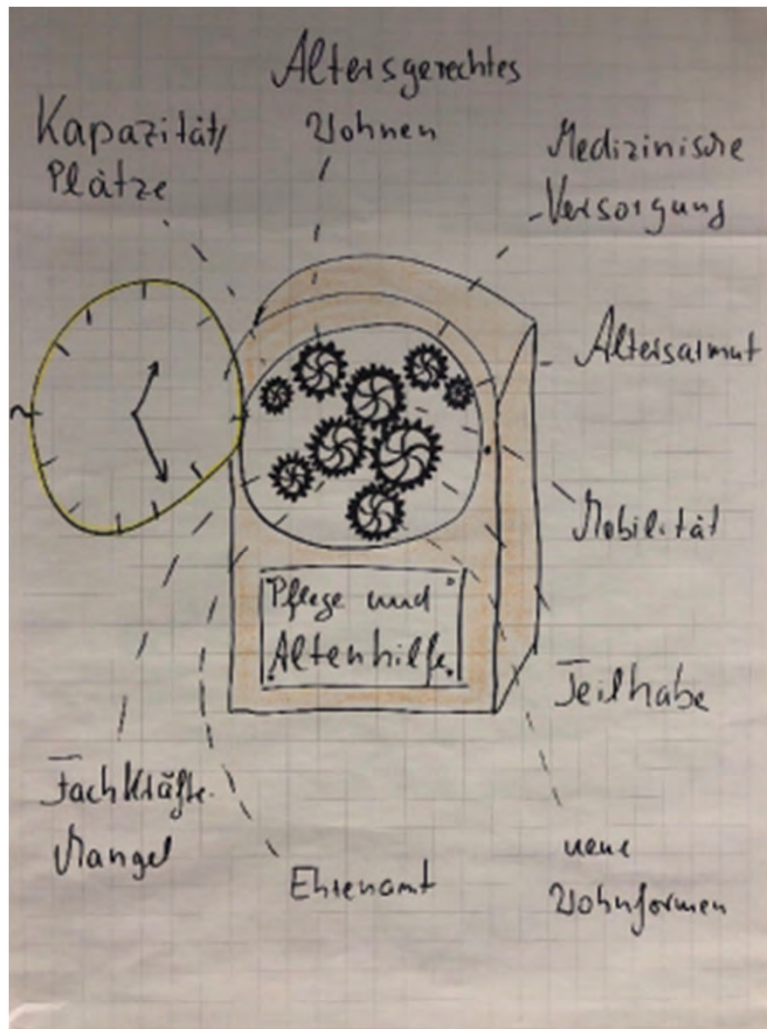 Altersgerechtes
Wohnen
Kapazität/
Plätze
Medizinische
-Versorgung
Altersarmut
Mobilität
Pflege und
Altenhilfe.
Teilhabe
Fachkräfte-
Mangel
Ehrenamt
neue
Wohnformen